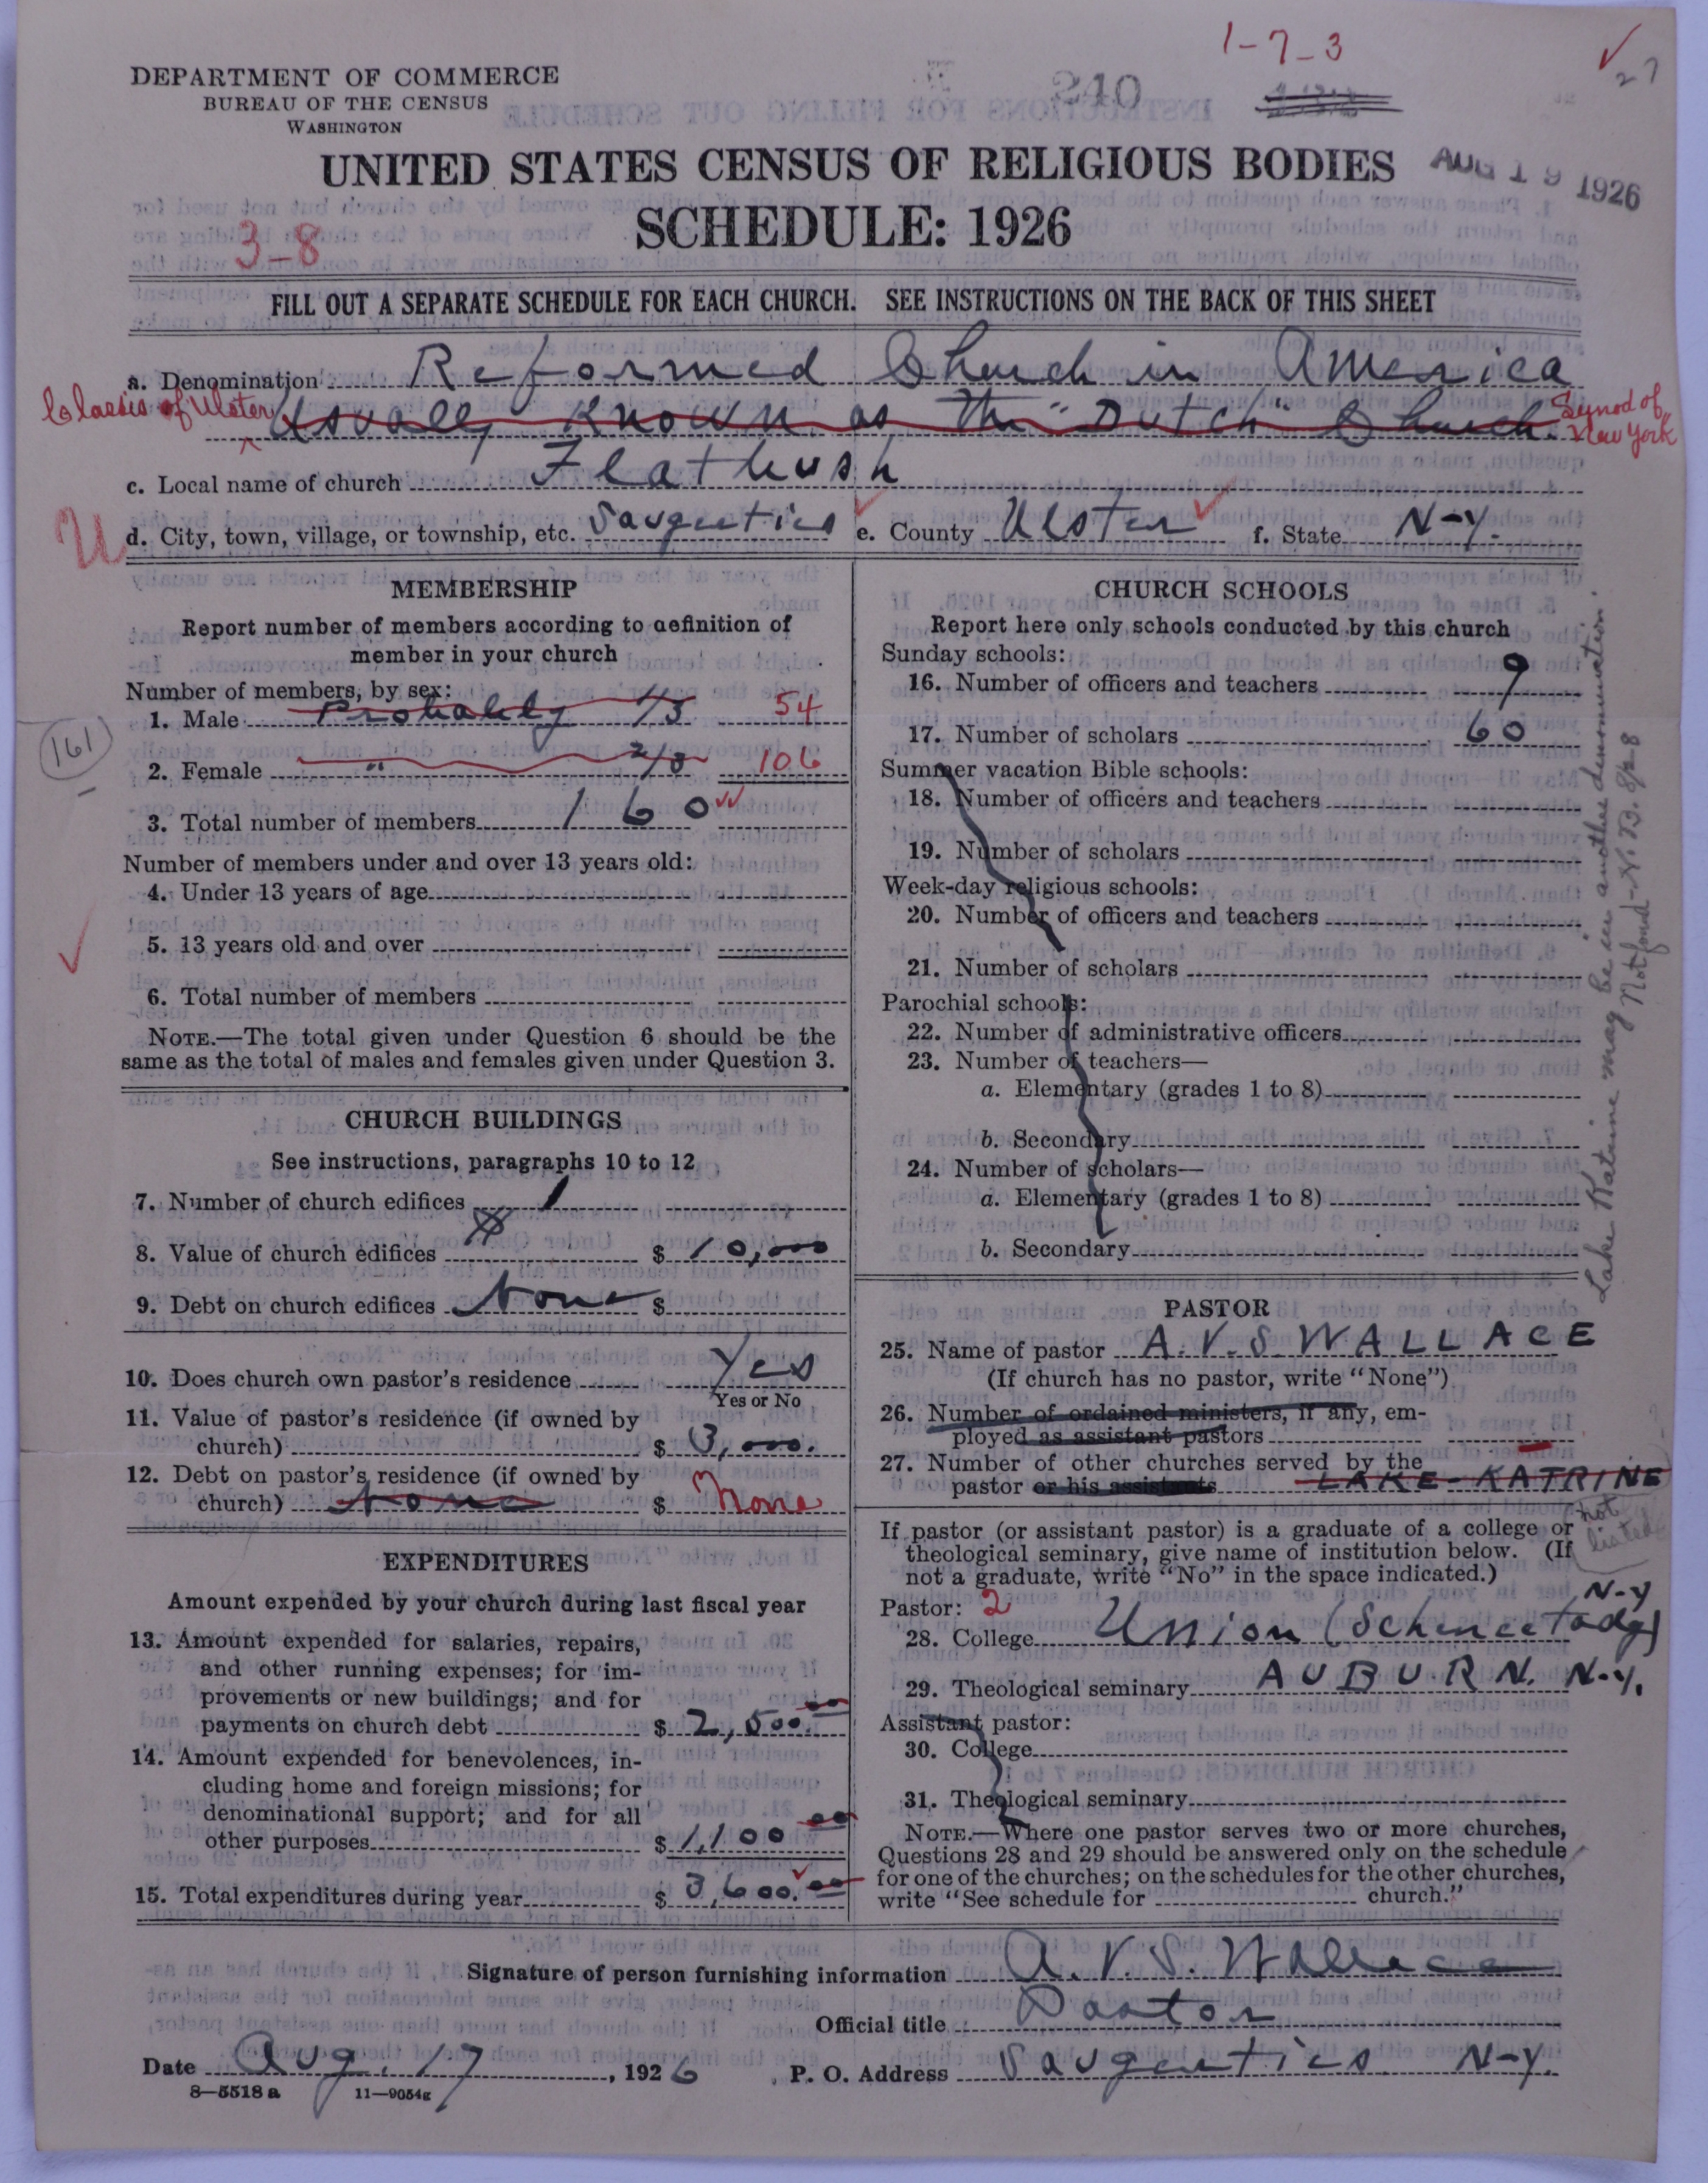 1-7-3
27
DEPARTMENT OF COMMERCE
BUREAU OF THE CENSUS
WASHINGTON
240
UNITED STATES CENSUS OF RELIGIOUS BODIES
AUG 19 1926
SCHEDULE: 1926
3-8
FILL OUT A SEPARATE SCHEDULE FOR EACH CHURCH. SEE INSTRUCTIONS ON THE BACK OF THIS SHEET
a. Denomination Reformed Church in America
Classis of Ulster Usually Known as the "Dutch" Church. Synod of New York
c. Local name of church Flatbush
U
d. City, town, village, or township, etc. Saugerties e. County Ulster f. State N-Y.
MEMBERSHIP
Report number of members according to definition of
member in your church
Number of members, by sex:
1. Male Probably 1/3 54
161
2. Female " 2/3 106
3. Total number of members 160
Number of members under and over 13 years old:
4. Under 13 years of age
5. 13 years old and over
6. Total number of members
NOTE.—The total given under Question 6 should be the
same as the total of males and females given under Question 3.
CHURCH BUILDINGS
See instructions, paragraphs 10 to 12
7. Number of church edifices 1
8. Value of church edifices $ 10,000
9. Debt on church edifices None $
10. Does church own pastor's residence Yes
Yes or No
11. Value of pastor's residence (if owned by
church) $ 3,000.
12. Debt on pastor's residence (if owned by
church) None $ None
EXPENDITURES
Amount expended by your church during last fiscal year
13. Amount expended for salaries, repairs,
and other running expenses; for im-
provements or new buildings; and for
payments on church debt $ 2,500.00
14. Amount expended for benevolences, in-
cluding home and foreign missions; for
denominational support; and for all
other purposes $ 1,100 00
15. Total expenditures during year $ 3,600.00
CHURCH SCHOOLS
Report here only schools conducted by this church
Sunday schools:
16. Number of officers and teachers 9
17. Number of scholars 60
Summer vacation Bible schools:
18. Number of officers and teachers
19. Number of scholars
Week-day religious schools:
20. Number of officers and teachers
21. Number of scholars
Parochial schools:
22. Number of administrative officers
23. Number of teachers—
a. Elementary (grades 1 to 8)
b. Secondary
24. Number of scholars—
a. Elementary (grades 1 to 8)
b. Secondary
Lake Katrine may be in another denomination.
Not found-N.B.
PASTOR
25. Name of pastor A.V.S. WALLACE
(If church has no pastor, write "None")
26. Number of ordained ministers, if any, em-
ployed as assistant pastors
27. Number of other churches served by the
pastor or his assistants LAKE-KATRINE
not listed
If pastor (or assistant pastor) is a graduate of a college or
theological seminary, give name of institution below. (If
not a graduate, write "No" in the space indicated.)
Pastor: 2
28. College Union (Schenectady) N-Y
29. Theological seminary AUBURN. N-Y.
Assistant pastor:
30. College
31. Theological seminary
NOTE.—Where one pastor serves two or more churches,
Questions 28 and 29 should be answered only on the schedule
for one of the churches; on the schedules for the other churches,
write "See schedule for church."
Signature of person furnishing information A.V.S. Wallace
Official title Pastor
Date Aug. 17, 1926 P. O. Address Saugerties N-Y.
8—5518 a 11—9054g